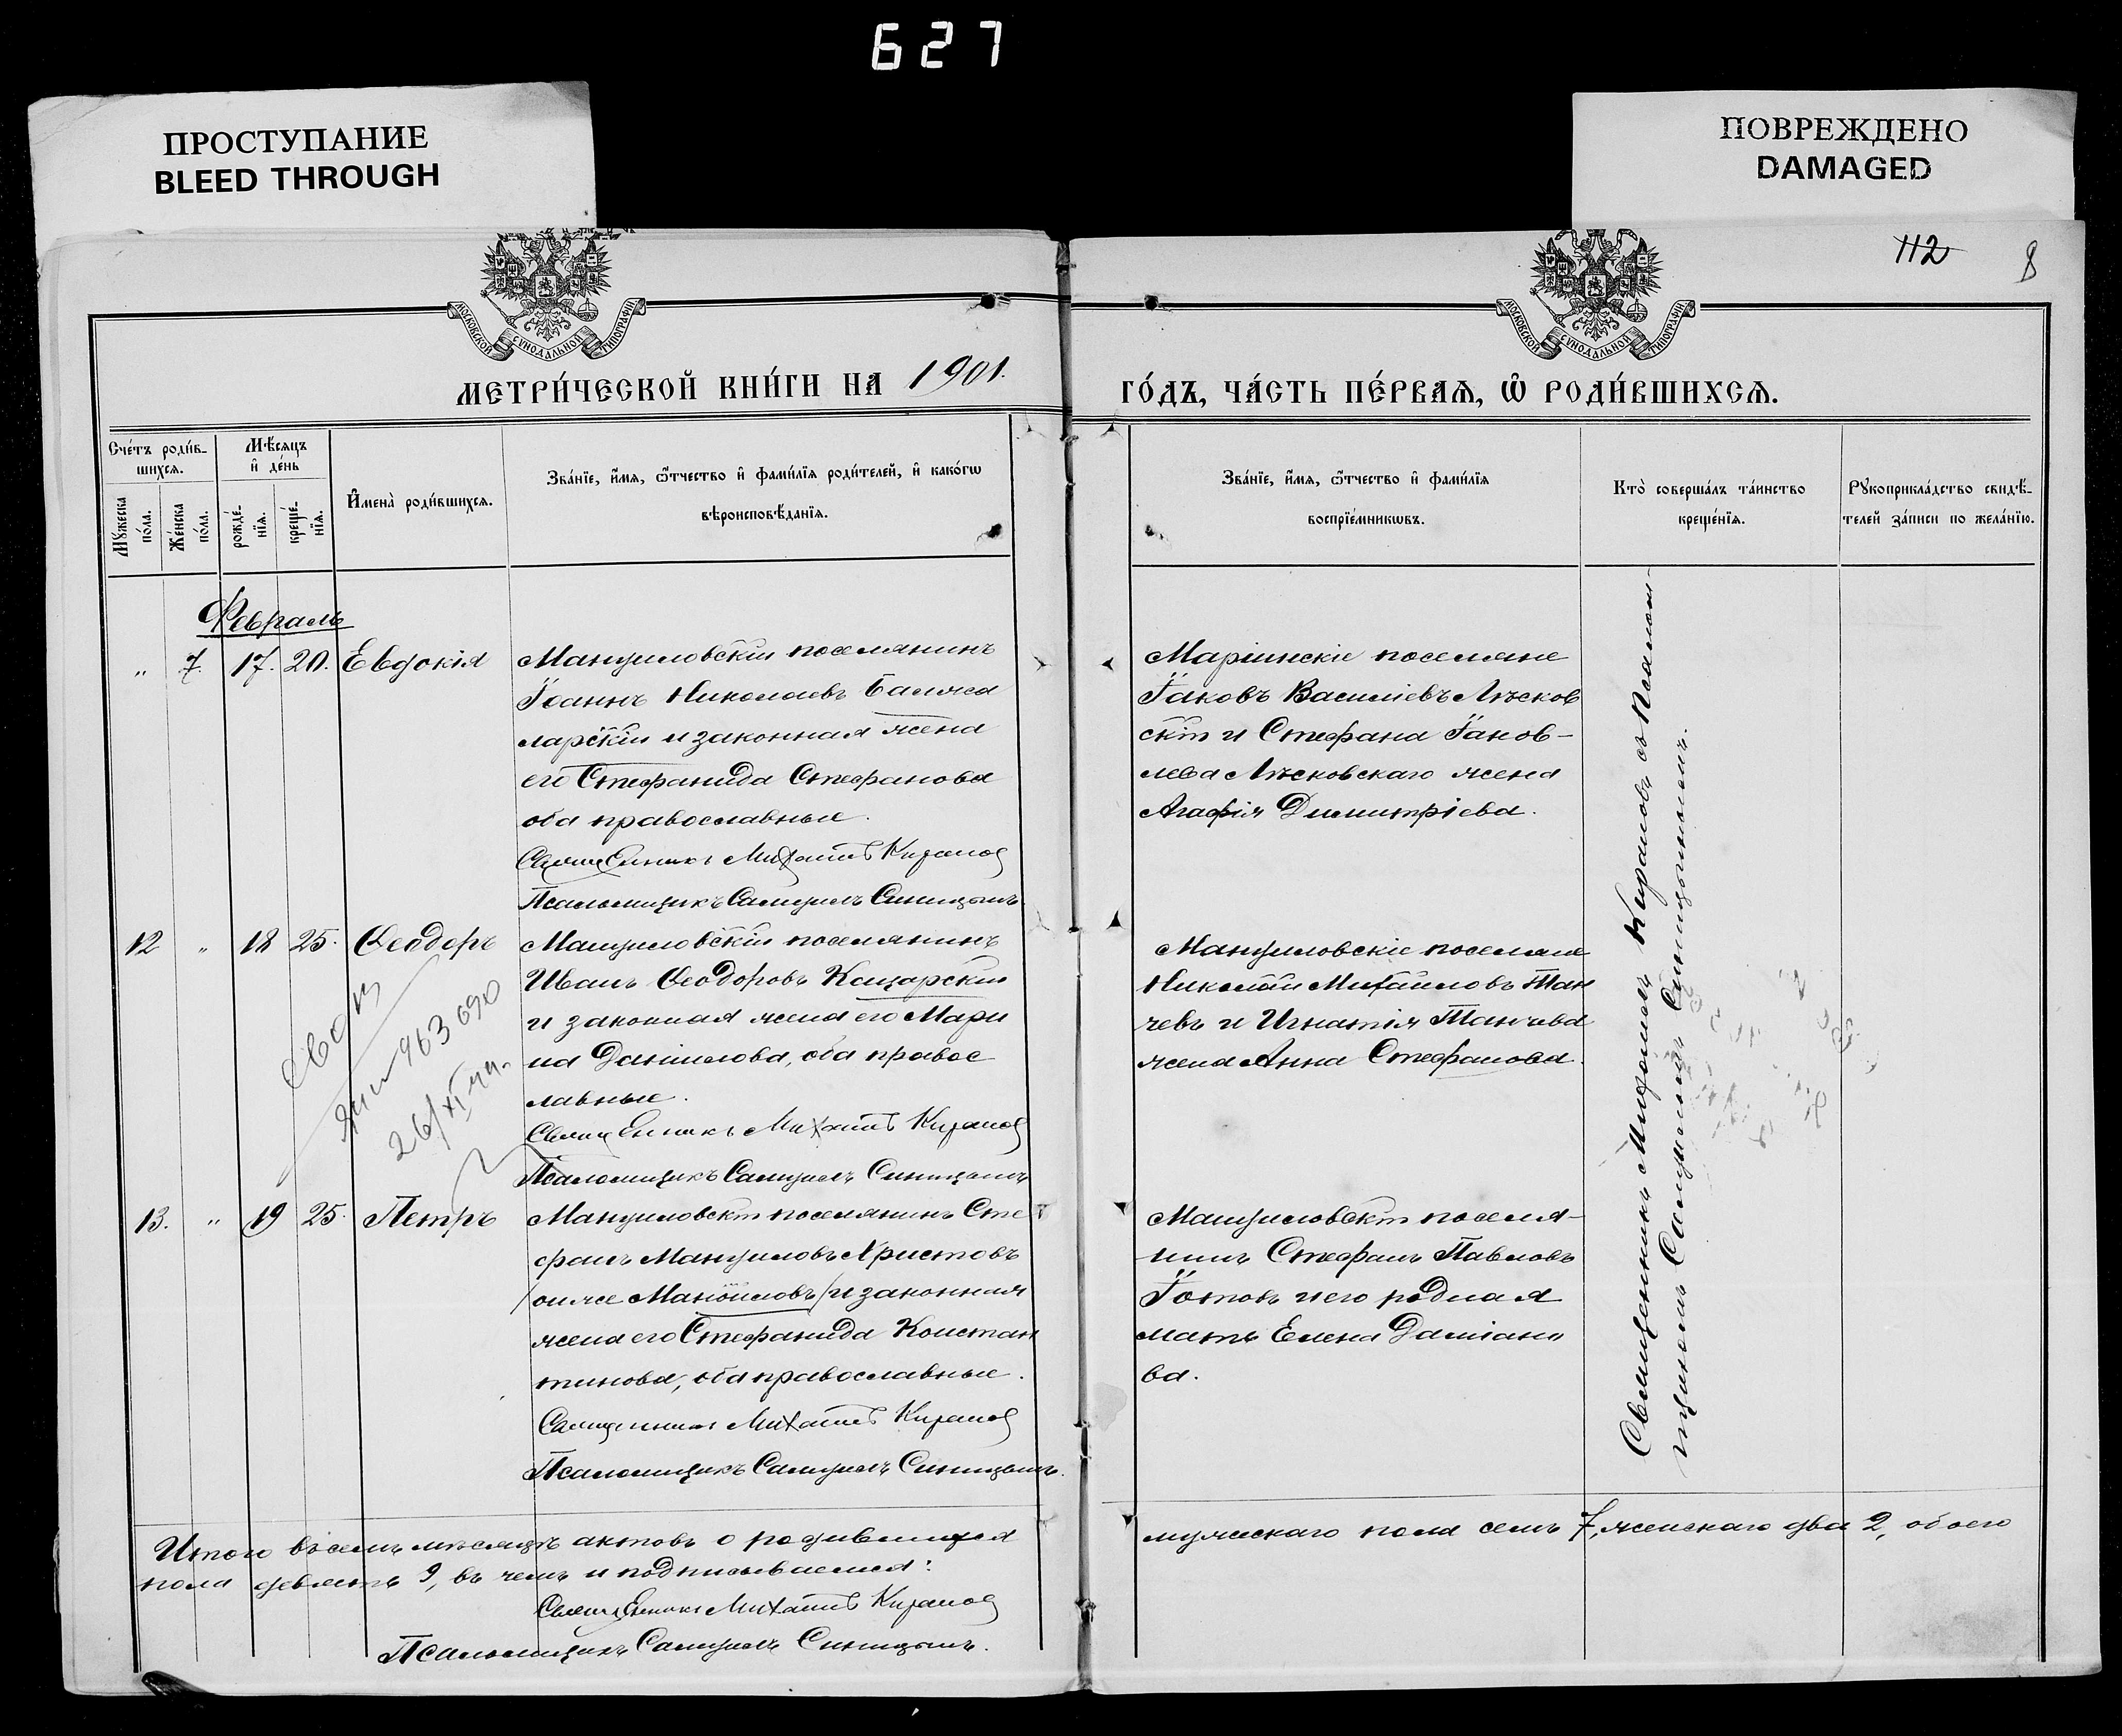 627
ПРОСТУПАНИЕ
BLEED THROUGH
ПОВРЕЖДЕНО
DAMAGED
112
8
МОСКОВСКОЙ СѴНОДАЛЬНОЙ ТИПОГРАФІИ
МОСКОВСКОЙ СѴНОДАЛЬНОЙ ТИПОГРАФІИ
МЕТРИ́ЧЕСКОЙ КНИ́ГИ НА 1901.
ГО́ДЪ, ЧА́СТЬ ПЕ́РВАѦ, Ѡ҆ РОДИ́ВШИХСѦ.
Сче́тъ роди́в-
шихсѧ.
Мꙋ́жеска
по́ла.
Же́нска
по́ла.
Мѣ́сѧцъ
и҆ де́нь
рожде́-
нїѧ.
креще́-
нїѧ.
И҆мена̀ роди́вшихсѧ.
Зва́нїе, и҆́мѧ, ѻ҆́тчество и҆ фами́лїѧ роди́телей, и҆ како́гѡ
вѣроисповѣ́данїѧ.
Зва́нїе, и҆́мѧ, ѻ҆́тчество и҆ фами́лїѧ
воспрїе́мникѡвъ.
Кто̀ соверша́лъ та́инство
креще́нїѧ.
Рꙋкоприкла́дство свидѣ́-
телей за́писи по жела́нїю.
Февраль
" 7. 17. 20. Евдокія
Мануиловскій поселянинъ
Іоаннъ Николаевъ Балжа
ларскій и законная жена
его Стефанида Стефанова
оба православные.
Священникъ Михаилъ Кирановъ
Псаломщикъ Самуилъ Синицынъ
Маріинскіе поселяне
Іаковъ Василіевъ Лѣсков
скій и Стефана Іаков-
лева Лѣсковскаго жена
Агафія Димитріева.
12 " 18 25. Ѳеодоръ
Мануиловскій поселянинъ
Иванъ Ѳеодоровъ Кащарскій
и законная жена его Мари
на Даніилова, оба правос
лавные.
Священникъ Михаилъ Кирановъ
Псаломщикъ Самуилъ Синицынъ
963 690
26/XI 44.
Мануиловскіе поселяне
Николай Михайловъ Тан
чевъ и Игнатія Танчева
жена Анна Стефанова.
13. " 19 25. Петръ
Мануиловскій поселянинъ Сте
фанъ Мануиловъ Христовъ
/онже Маноиловъ/ и законная
жена его Стефанида Констан
тинова, оба православные.
Священникъ Михаилъ Кирановъ
Псаломщикъ Самуилъ Синицынъ.
Мануиловскій поселя-
нинъ Стефанъ Павловъ
Іотовъ и его родная
мать Елена Даміано
ва.
Священникъ Михаилъ Кирановъ съ Псалом-
щикомъ Самуиломъ Синицынымъ.
Итого въ семъ мѣсяцѣ актовъ о родившихся
мужескаго пола семь 7, женскаго два 2, обоего
пола девять 9, въ чемъ и подписываемся:
Священникъ Михаилъ Кирановъ
Псаломщикъ Самуилъ Синицынъ.